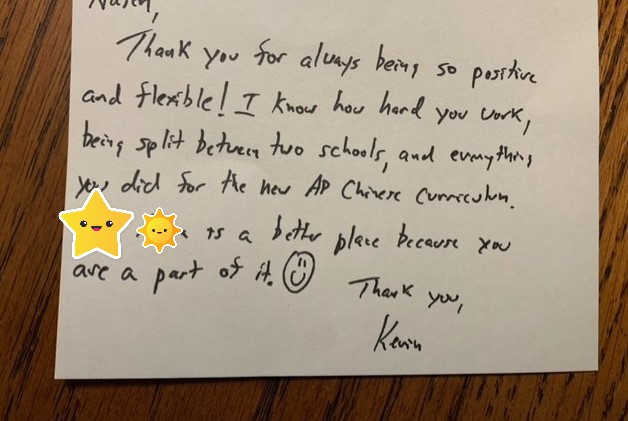 Thank you for always being so positive
and flexible! I know how hard you work,
being split between two schools, and everything
you did for the new AP Chinese Curriculum.
is a better place because you
are a part of it.
Thank you,
Kevin